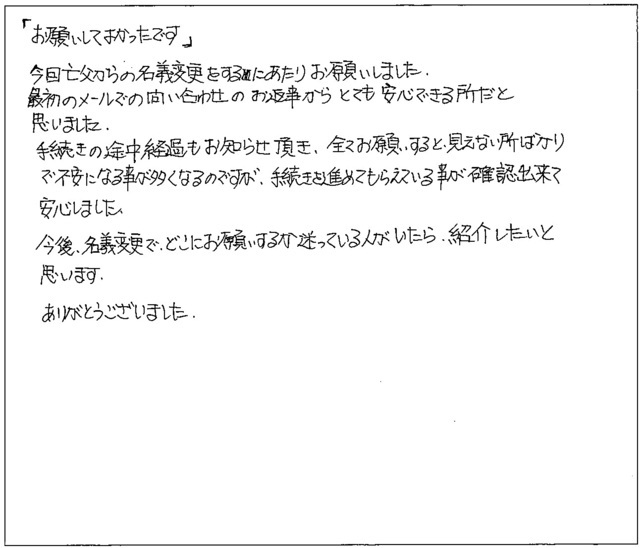 「お願いしてよかったです」
今回亡父からの名義変更をするにあたりお願いしました.
最初のメールでの問い合わせのお返事からとても安心できる所だと
思いました.
手続きの途中経過もお知らせ頂き、全てお願いすると、見えない所ばかり
で不安になる事が多くなるのですが、手続きを進めてもらえている事が確認出来て
安心しました.
今後、名義変更で、どこにお願いするか迷っている人がいたら、紹介したいと
思います.
ありがとうございました.